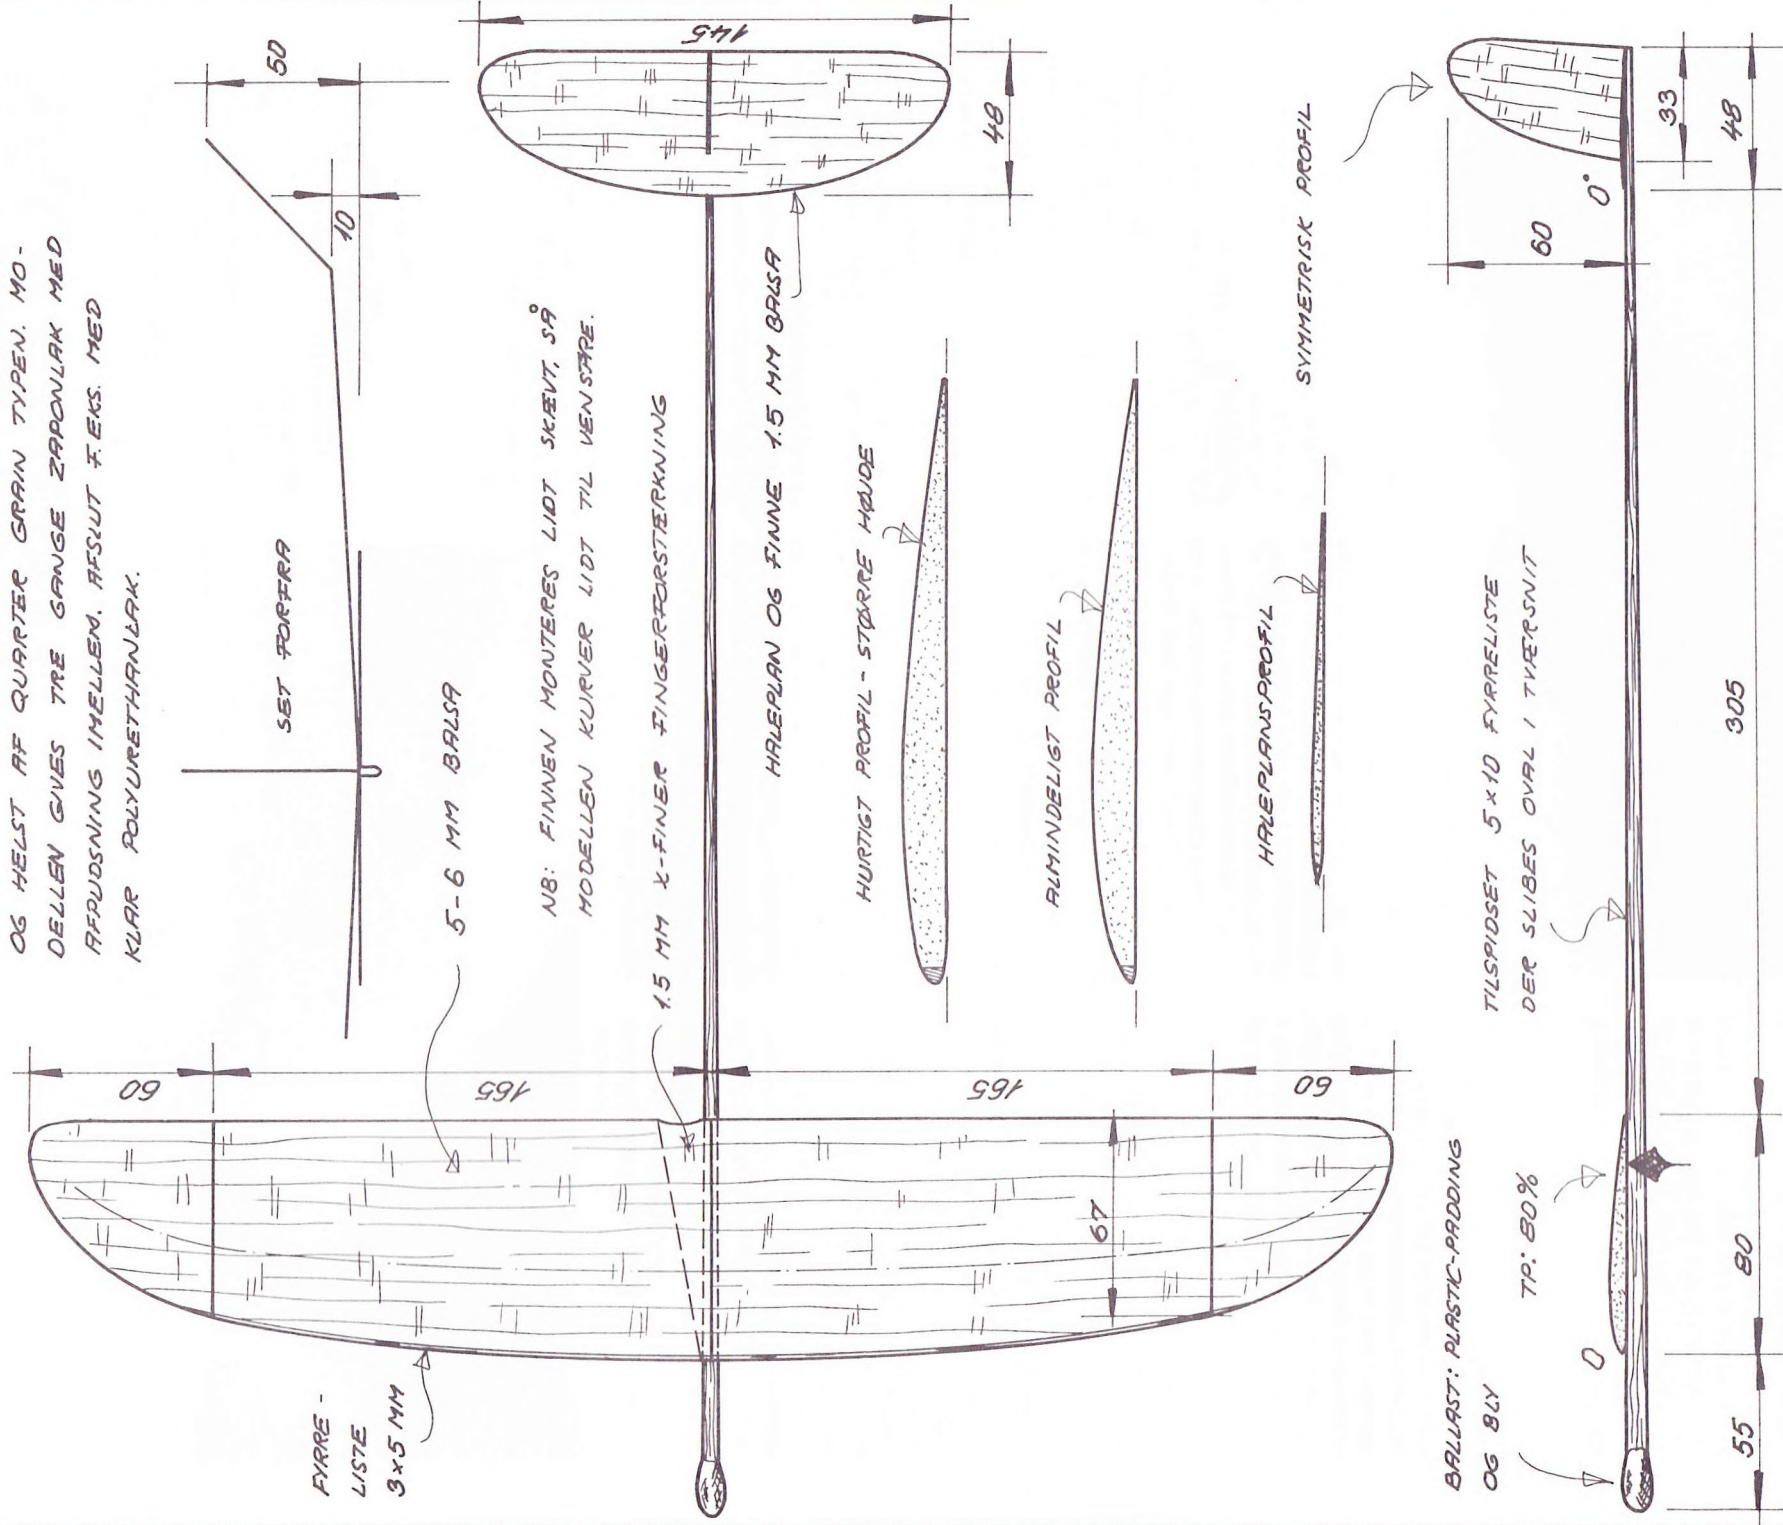 OG HELST AF QUARTER GRAIN TYPEN. MO-
DELLEN GIVES TRE GANGE ZAPONLAK MED
AFPUDSNING IMELLEM. AFSLUT F.EKS. MED
KLAR POLYURETHANLAK.
SET FORFRA
50
10
5-6 MM BALSA
NB: FINNEN MONTERES LIDT SKÆVT, SÅ
MODELLEN KURVER LIDT TIL VENSTRE.
1.5 MM X-FINER FINGERFORSTÆRKNING
HALEPLAN OG FINNE 1.5 MM BALSA
145
48
60
165
165
60
67
FYRRE-
LISTE
3x5 MM
HURTIGT PROFIL - STØRRE HØJDE
ALMINDELIGT PROFIL
HALEPLANSPROFIL
SYMMETRISK PROFIL
TILSPIDSET 5x10 FYRRELISTE
DER SLIBES OVAL I TVÆRSNIT
BALLAST: PLASTIC-PADDING
OG BLY
TP: 80%
0
0°
60
33
48
305
80
55